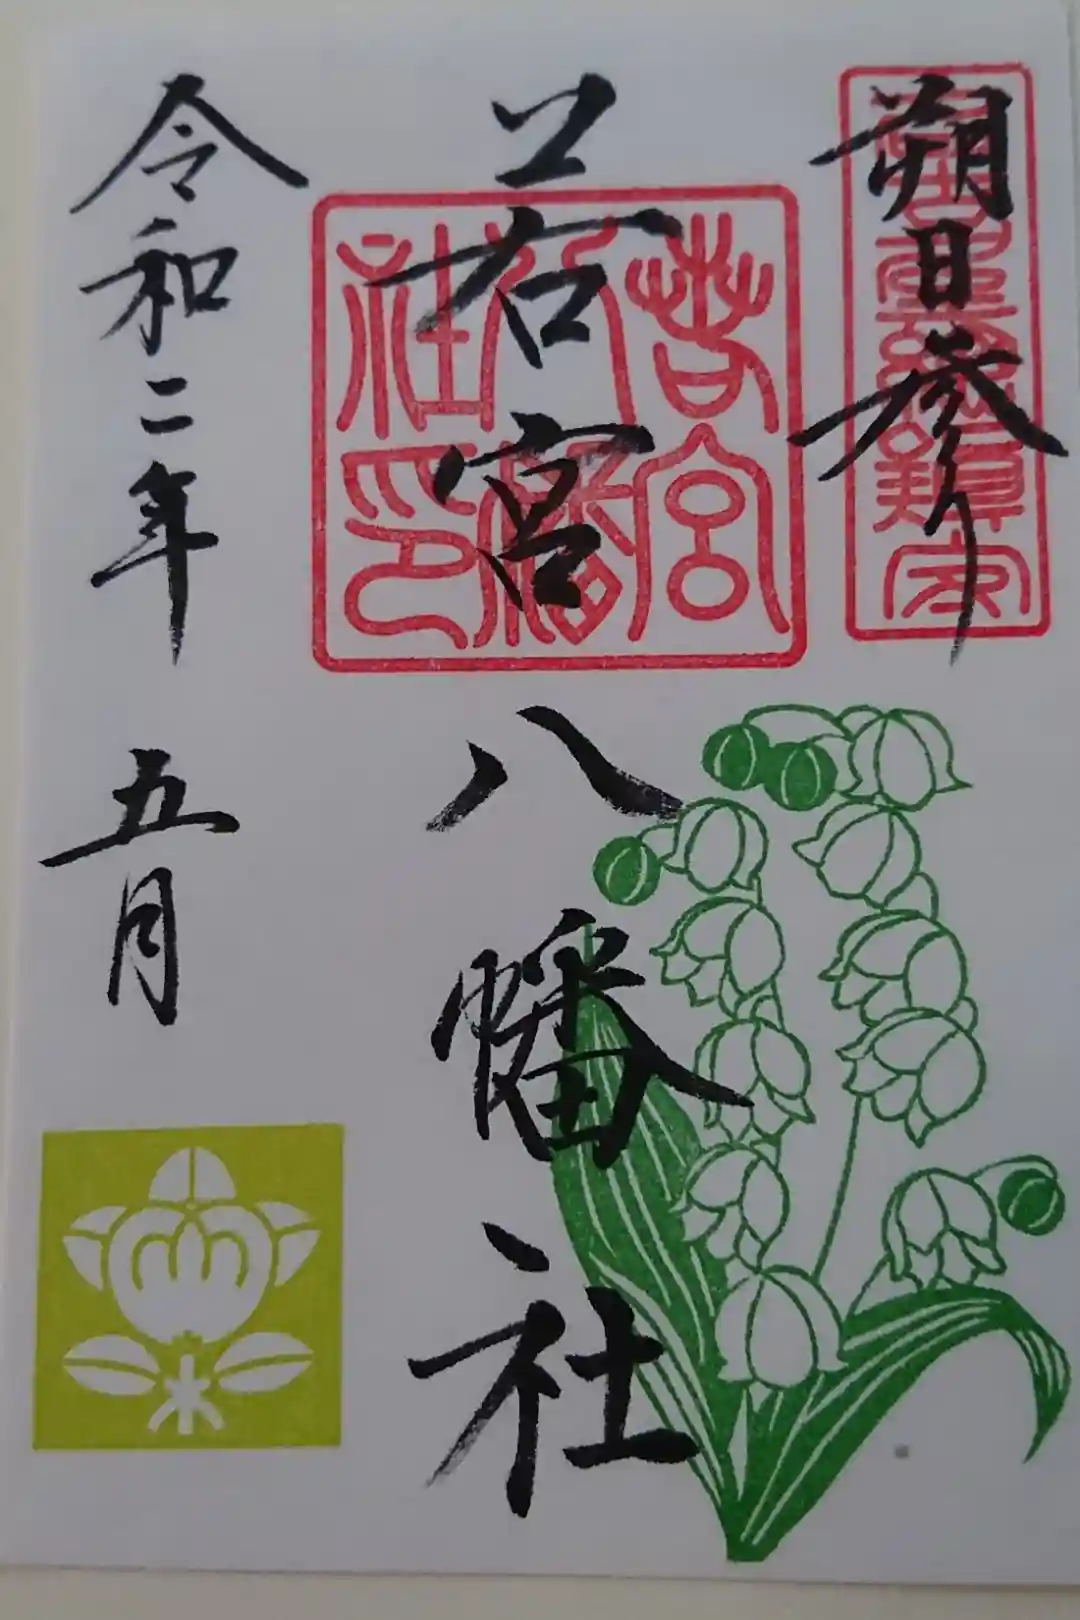 朔日参り
若宮八幡社
若宮八幡社印
令和二年五月